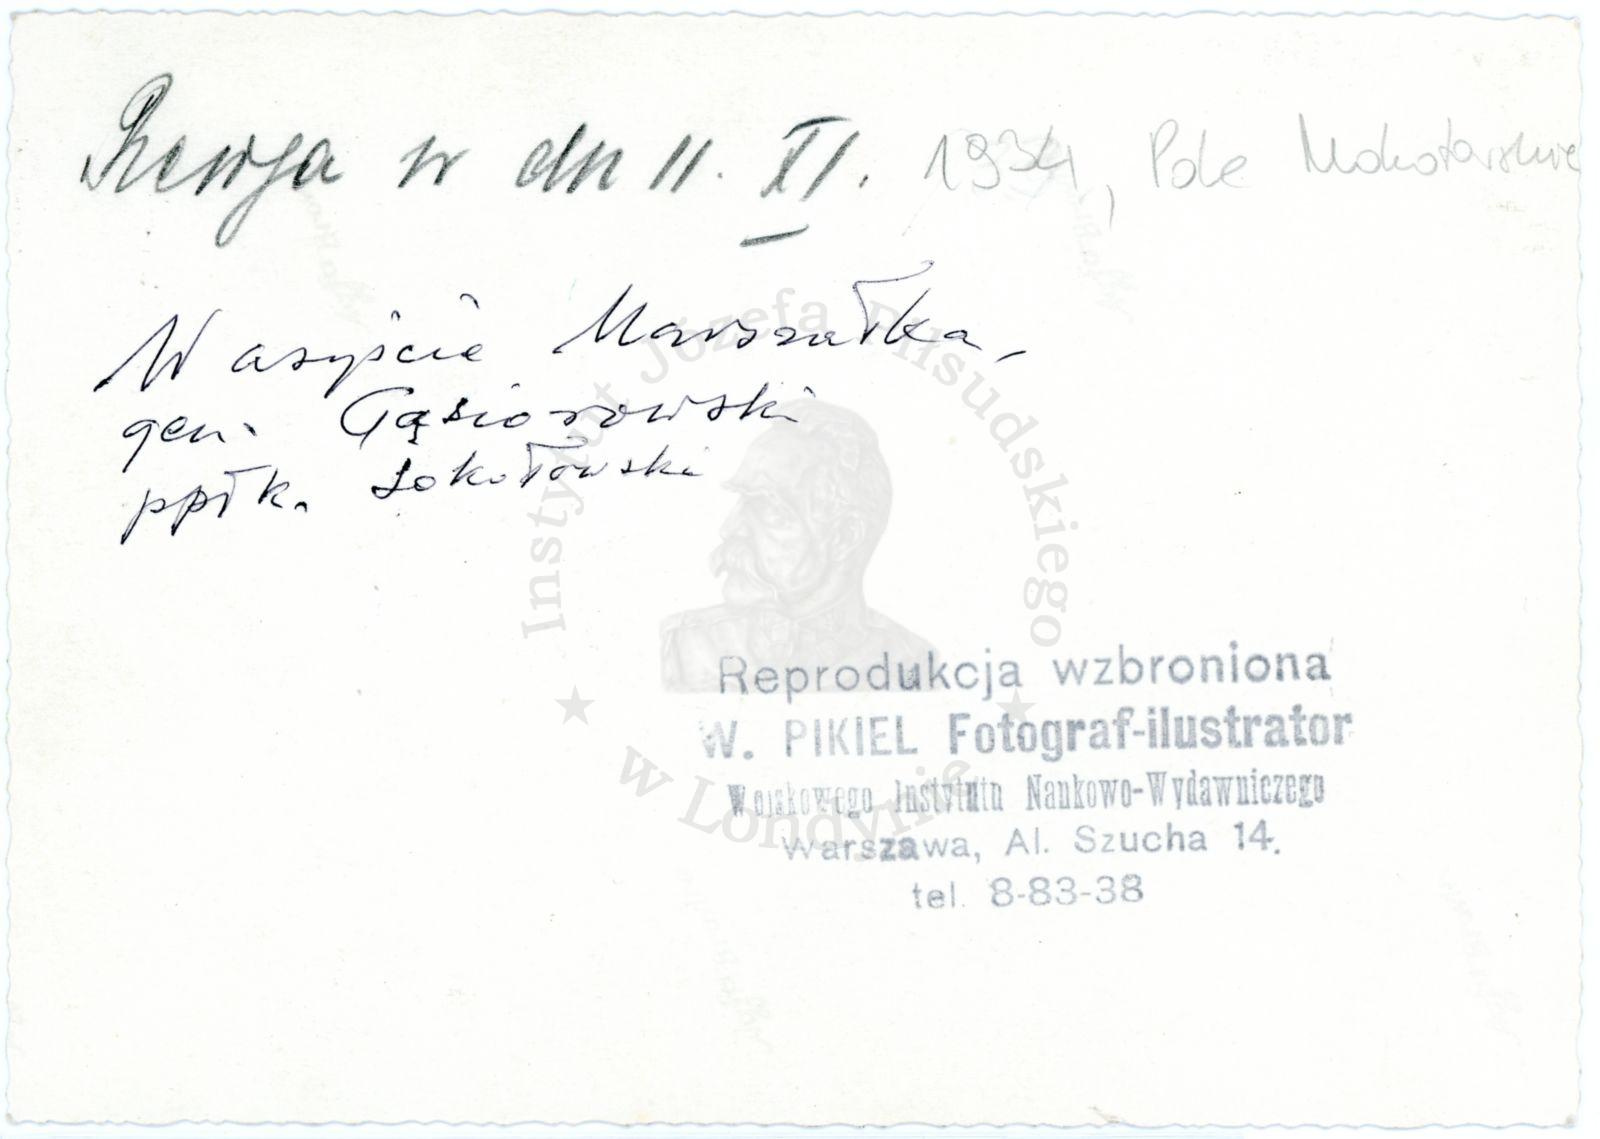 Rewja w dn 11. XI. 1934, Pole Mokotowskie
W asyście Marszałka,
gen. Gąsiorowski
ppłk. Sokołowski
Instytut Józefa Piłsudskiego
w Londynie
Reprodukcja wzbroniona
W. PIKIEL Fotograf-ilustrator
Wojskowego Instytutu Naukowo-Wydawniczego
Warszawa, Al. Szucha 14.
tel. 8-83-38